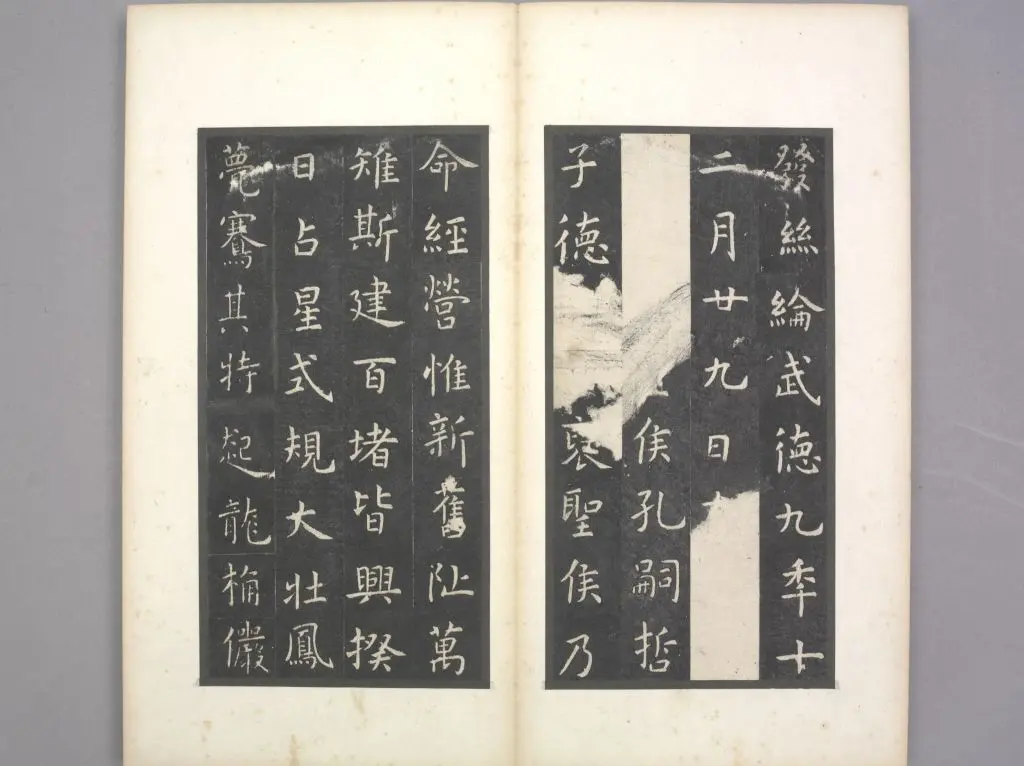 發絲綸武德九年十
二月廿九日
侯孔嗣哲
子德褒聖侯乃
命經營惟新舊阯萬
雉斯建百堵皆興揆
日占星式規大壯鳳
甍騫其特起龍桷儼